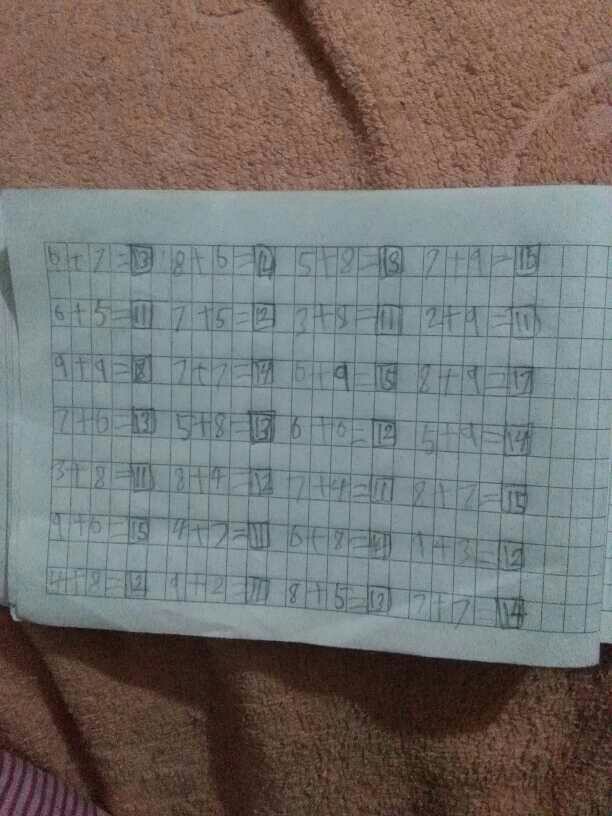 6+7=13 8+6=14 5+8=13 7+9=16
6+5=11 7+5=12 3+8=11 2+9=11
9+9=18 7+7=14 6+9=15 8+9=17
7+6=13 5+8=13 6+6=12 5+9=14
3+8=11 8+4=12 7+4=11 8+7=15
9+6=15 4+7=11 6+8=14 9+3=12
4+8=12 9+2=11 8+5=13 7+7=14